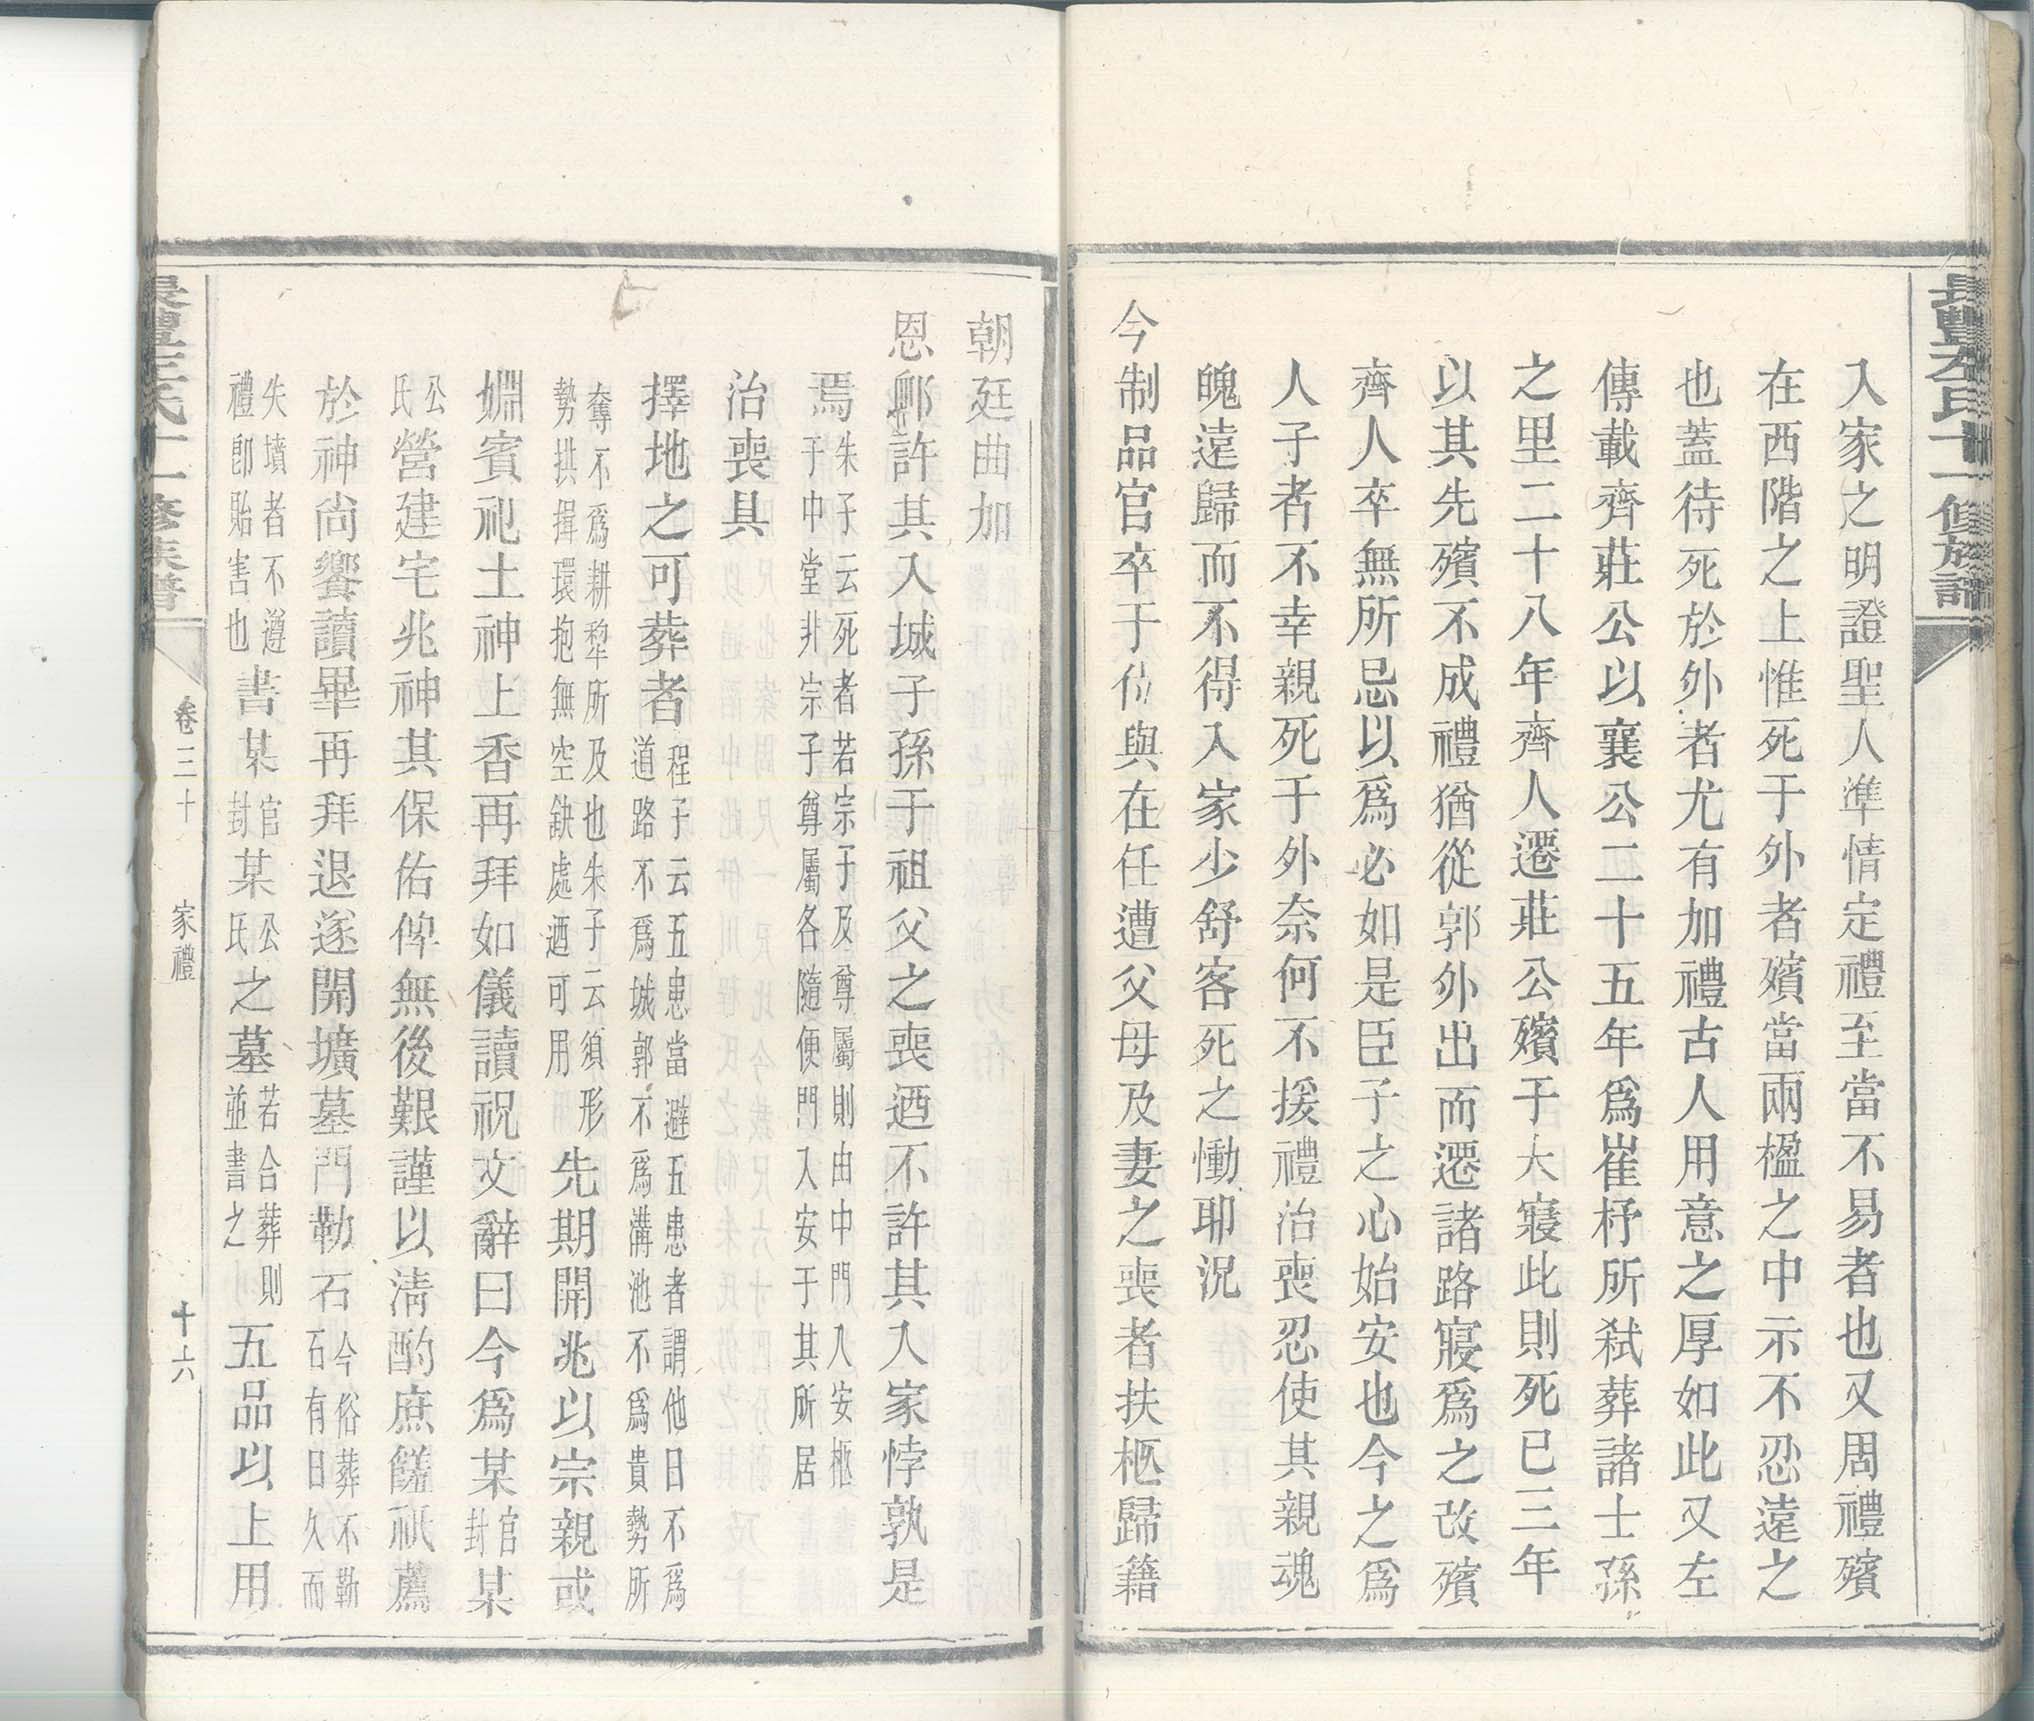 長豐李氏十一修族譜
入家之明證聖人準情定禮至當不易者也又周禮殯
在西階之上惟死于外者殯當兩楹之中示不忍遠之
也蓋待死於外者尤有加禮古人用意之厚如此又左
傳載齊莊公以襄公二十五年爲崔杼所弒葬諸士孫
之里二十八年齊人遷莊公殯于大寢此則死已三年
以其先殯不成禮猶從郭外出而遷諸路寢爲之改殯
齊人卒無所忌以爲必如是臣子之心始安也今之爲
人子者不幸親死于外奈何不援禮治喪忍使其親魂
魄遠歸而不得入家少舒客死之慟耶況
今制品官卒于位與在任遭父母及妻之喪者扶柩歸籍
朝廷曲加
恩卹許其入城子孫于祖父之喪迺不許其入家悖孰是
焉朱子云死者若宗子及尊屬則由中門入安柩
于中堂非宗子尊屬各隨便門入安于其所居
治喪具
擇地之可葬者程子云五患當避五患者謂他日不爲
道路不爲城郭不爲溝池不爲貴勢所
奪不爲耕犂所及也朱子云須形
勢拱揖環抱無空缺處迺可用先期開兆以宗親或
姻賓祀土神上香再拜如儀讀祝文辭曰今爲某官封某
公氏營建宅兆神其保佑俾無後艱謹以淸酌庶饈祇薦
於神尙饗讀畢再拜退遂開壙墓門勒石今俗葬不勒
石有日久而
失墳者不遵
禮卽貽害也書某官封某公氏之墓若合葬則
並書之五品以上用
卷三十
家禮
十六